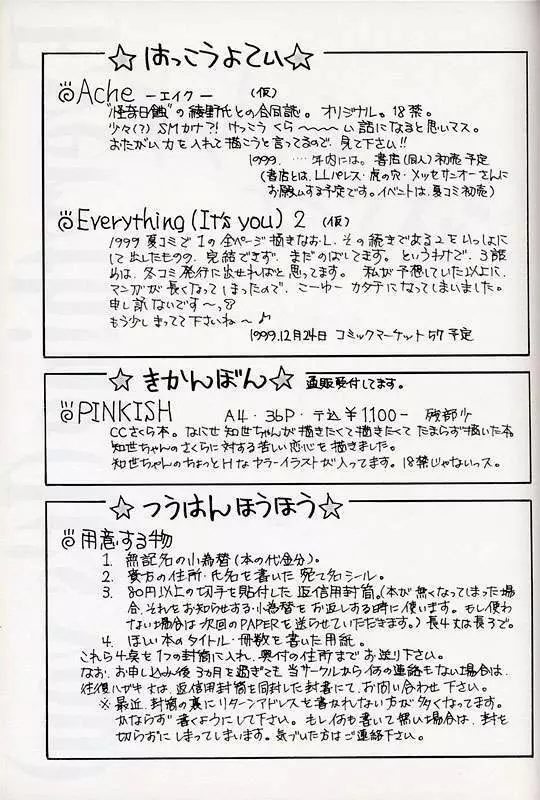 ☆はっこうよてい☆
Ache ーエイクー (仮)
"怪奇日蝕"の綾野氏との合同誌。オリジナル。18禁。
少々(?)SMカナ?!けっこうくら〜〜〜い話になると思いマス。
おたがい力を入れて描こうと言ってるので、見て下さい!!
1999. ‥‥年内には。書店(同人)初売予定
(書店とは、LLパレス・虎の穴・メッセサンオーさんに
お願いする予定です。イベントは、夏コミ初売)
Everything(It's you) 2 (仮)
1999夏コミで1の全ページ描きなおし、その続きである2をいっしょに
して出したものの、完結できず、まだのばしてます。というわけで、3話
めは、冬コミ発行に出せればと思ってます。私が予想していた以上に、
マンガが長くなってしまったので、こーゆーカタチになってしまいました。
申し訳ないです〜っ
もう少しまってて下さいね〜♪
1999.12月24日 コミックマーケット57予定
☆きかんぼん☆ 通販受付してます。
PINKISH A4・36P・〒込¥1100- 残部少
CCさくら本。なにせ知世ちゃんが描きたくて描きたくてたまらず描いた本。
知世ちゃんのさくらに対する苦しい恋心を描きました。
知世ちゃんのちょっとHなカラーイラストが入ってます。18禁じゃないっス。
☆つうはんほうほう☆
用意する物
1. 無記名の小為替(本の代金分)。
2. 貴方の住所・氏名を書いた宛て名シール。
3. 80円以上の切手を貼付した返信用封筒。(本が無くなってしまった場
合、それをお知らせする・小為替をお返しする時に使います。もし使わ
ない場合は次回のPAPERを送らせていただきます。)長4又は長3で。
4. ほしい本のタイトル・冊数を書いた用紙。
これら4点を1つの封筒に入れ、奥付の住所までお送り下さい。
なお、お申し込み後3カ月を過ぎても当サークルから何の連絡もない場合は、
往復ハガキ又は、返信用封筒を同封した封書にて、お問い合わせ下さい。
※最近、封筒の裏にリターンアドレスを書かれない方が多くなってます。
かならず書くようにして下さい。もし何も書いて無い場合は、封を
切らずにしまってしまいます。気づいた方はご連絡下さい。